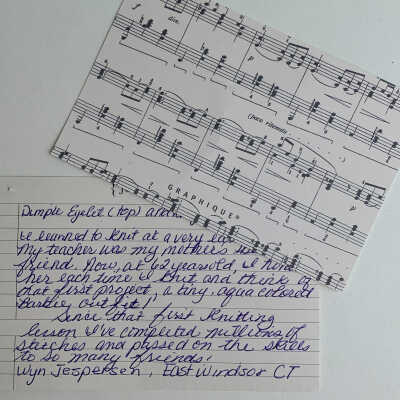 f
dim.
p
p
(poco ritenuto
GRAPHIQUE®
Dimple Eyelet (top) and
I learned to knit at a very ea
My teacher was my mother's
friend. Now, at 62 years old, I think
her each time I knit and think of
that first project, a tiny, aqua colored
Barbie outfit!!
Since that first knitting
lesson I've completed millions of
stitches and passed on the skills
to so many friends.
Wyn Jespersen, East Windsor CT